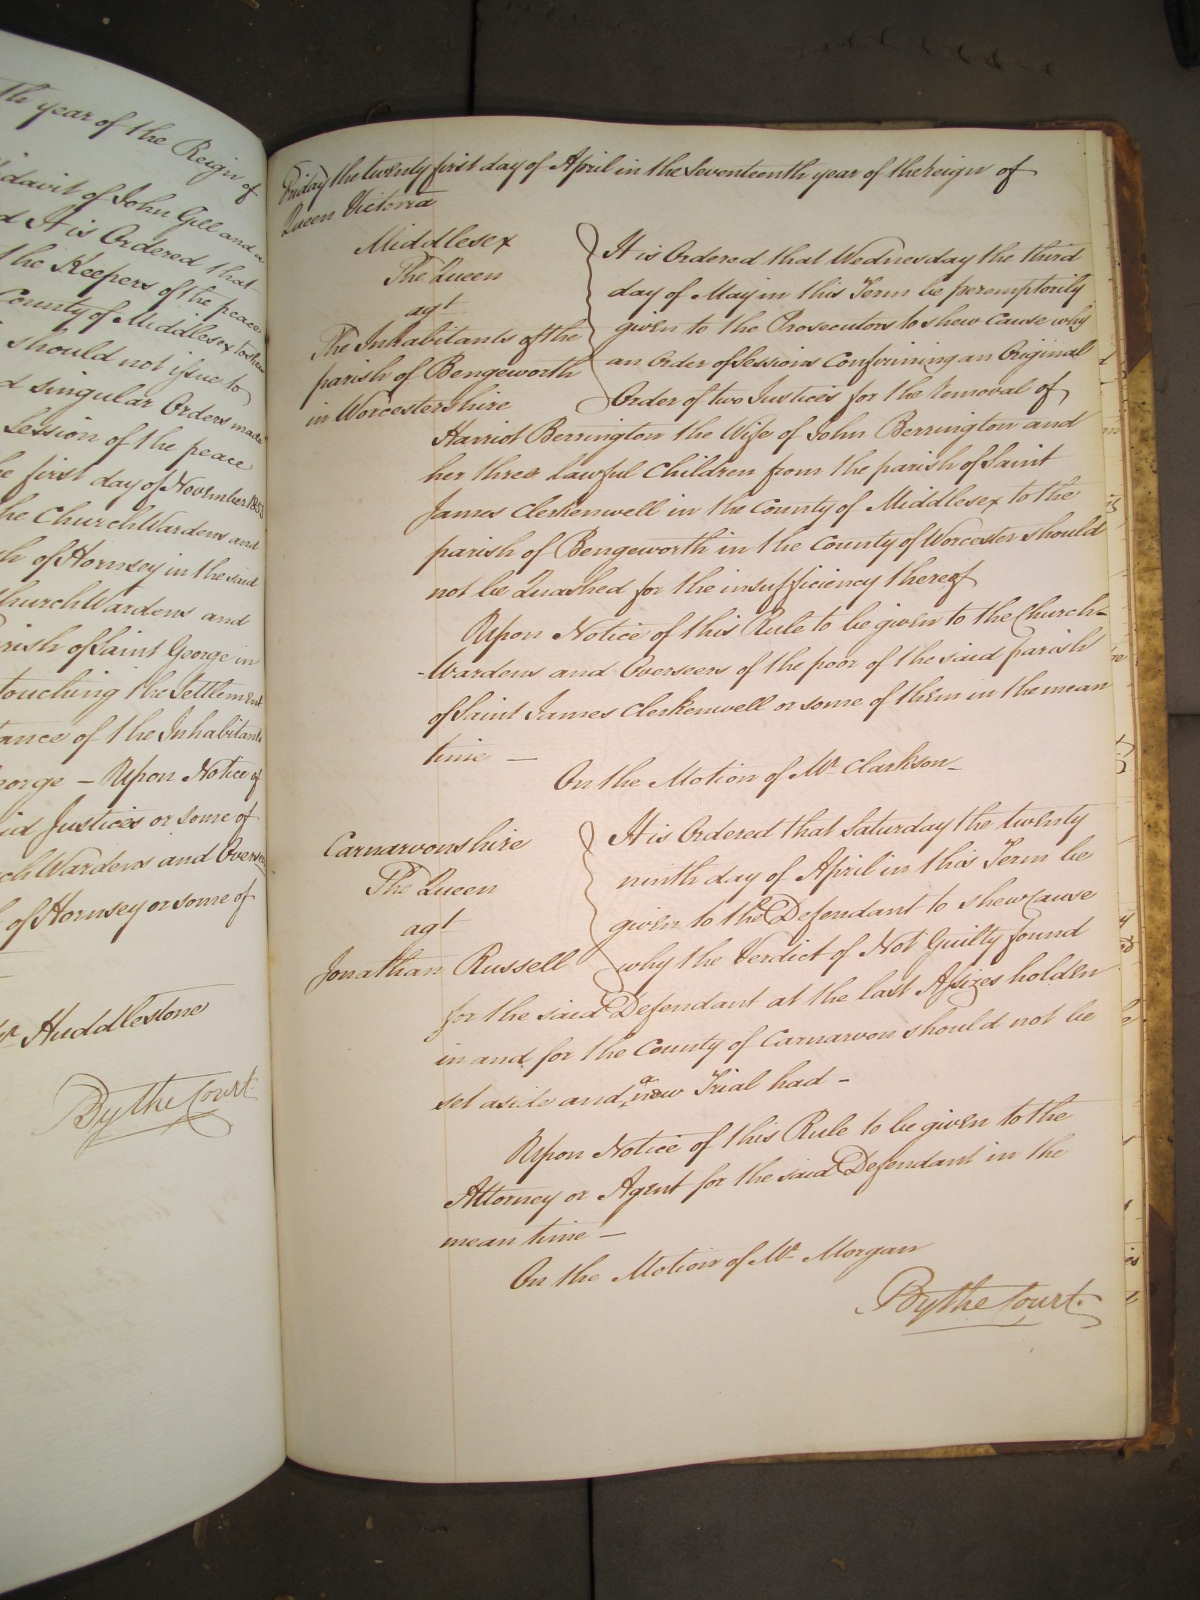 th year of the Reign of
idavit of John Gill and a
d It is Ordered that
the Keepers of the peace
County of Middlesex to shew
should not issue to
d singular Orders made
Session of the peace
he first day of November 1853
he Church Wardens and
h of Hornsey in the said
hurch Wardens and
rish of Saint George in
touching the Settlement
ance of the Inhabitants
eorge – Upon Notice of
id Justices or some of
ch Wardens and Overse
of Hornsey or some of
Mr Huddlestone
By the Court
Friday the twenty first day of April in the Seventeenth year of the reign of
Queen Victoria
Middlesex
The Queen
agt
The Inhabitants of the
parish of Bengeworth
in Worcestershire
It is Ordered that Wednesday the third
day of May in this Term be peremptorily
given to the Prosecutors to shew cause why
an Order of Sessions Confirming an Original
Order of two Justices for the Removal of
Harriot Berrington the Wife of John Berrington and
her three lawful Children from the parish of Saint
James Clerkenwell in the County of Middlesex to the
parish of Bengeworth in the County of Worcester should
not be Quashed for the insufficiency thereof
Upon Notice of this Rule to be given to the Church-
-Wardens and Overseers of the poor of the said parish
of Saint James Clerkenwell or some of them in the mean
time –
On the Motion of Mr. Clarkson –
Carnarvonshire
The Queen
agt
Jonathan Russell
It is Ordered that Saturday the twenty
ninth day of April in this Term be
given to the Defendant to shew cause
why the Verdict of Not Guilty found
for the said Defendant at the last Assizes holden
in and for the County of Carnarvon should not be
set aside and a new Trial had –
Upon Notice of this Rule to be given to the
Attorney or Agent for the said Defendant in the
mean time –
On the Motion of Mr. Morgan
By the Court.